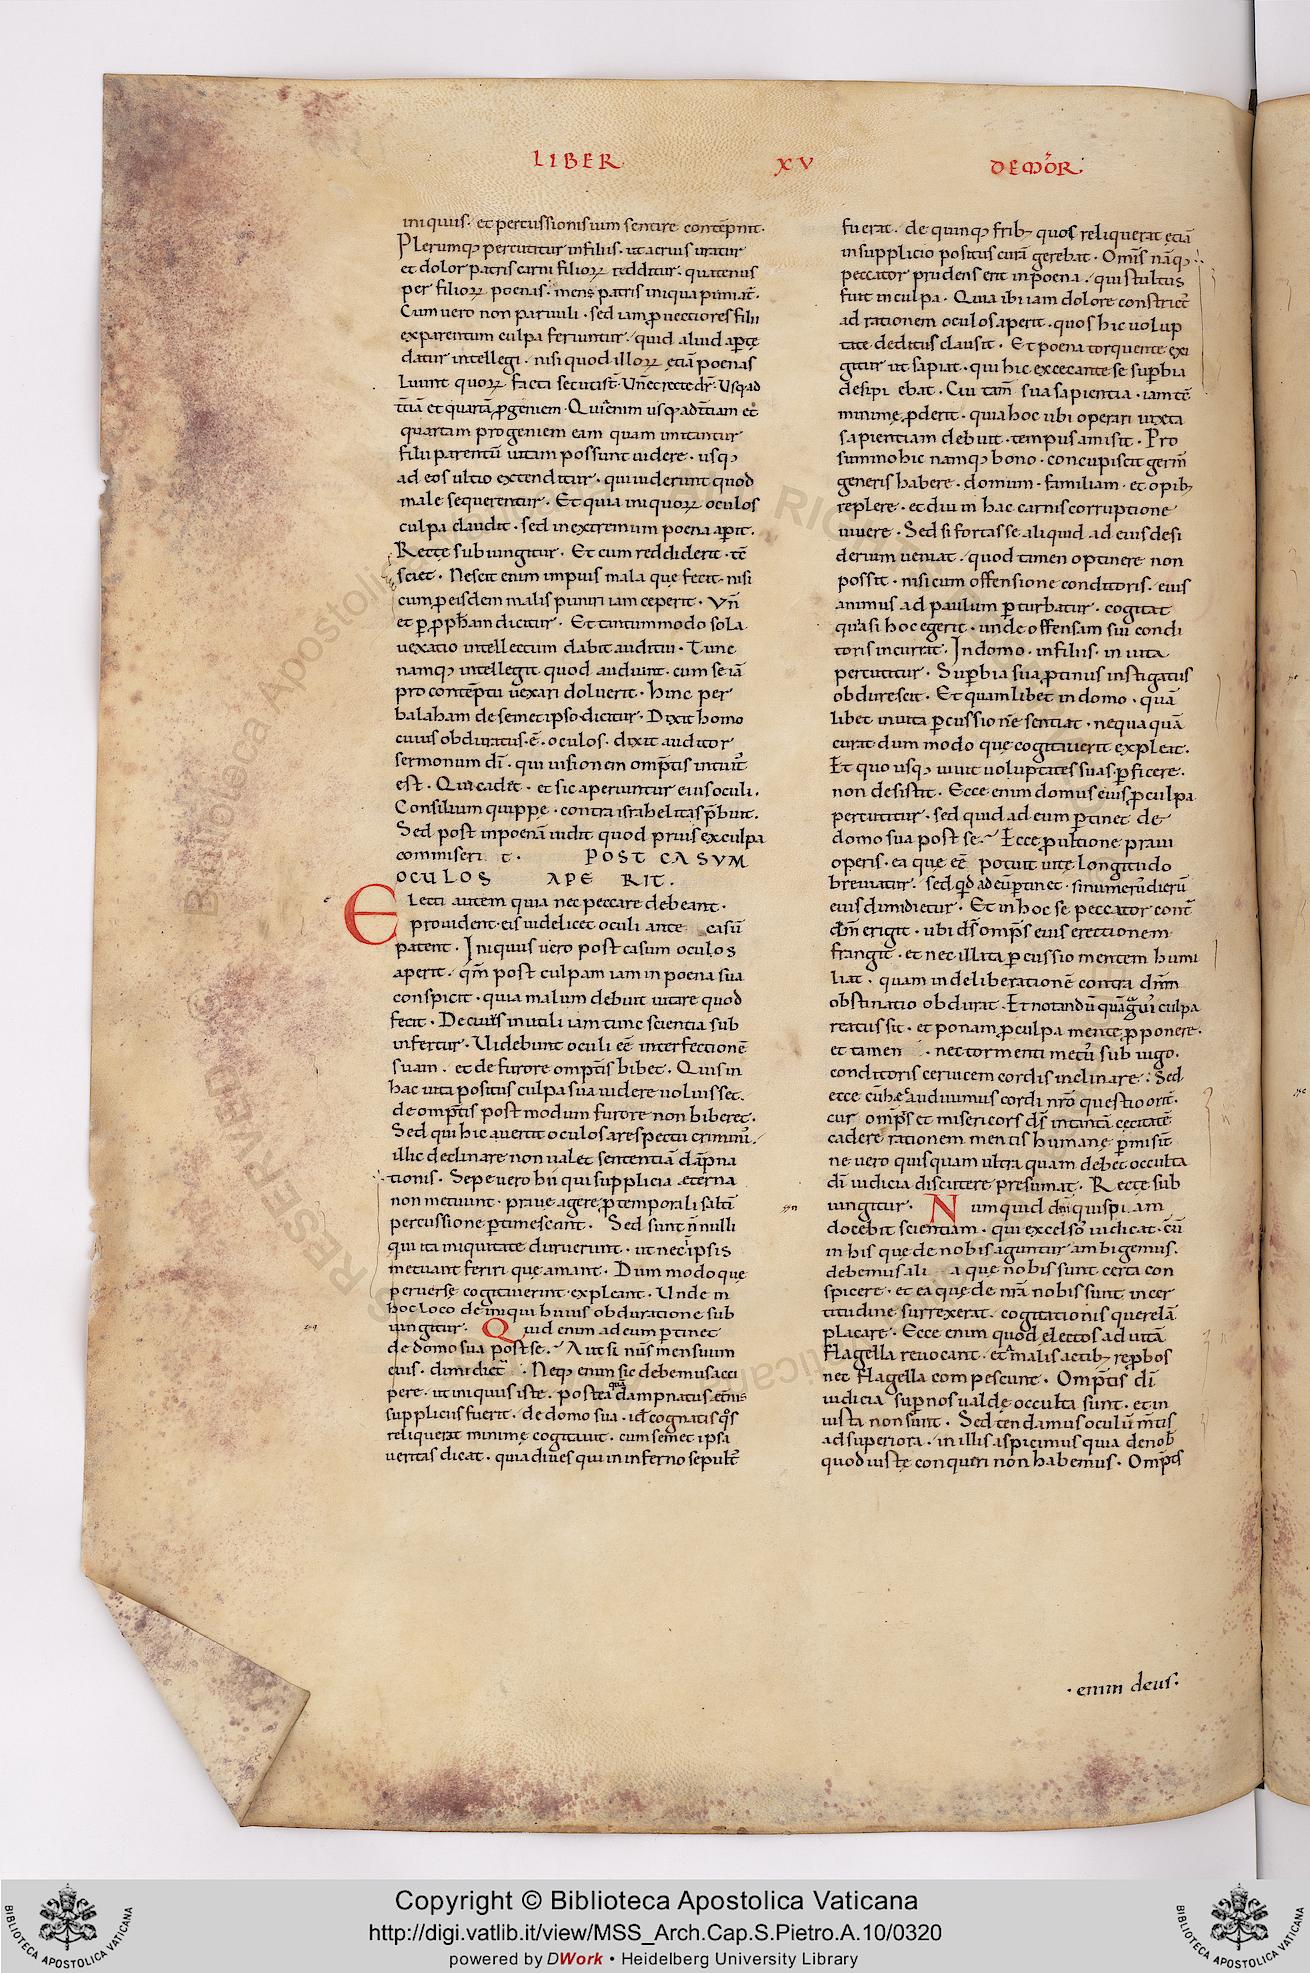 LIBER XV DE MOR̄
iniquus · et percussionis suum sentire contēpnit ·
Plerumq; percutitur in filiis · ut acrius uratur
et dolor patris carni filioꝝ redditur · quatenus
per filioꝝ poenas · mens patris iniqua puniat̄ ·
Cum uero non paruuli · sed iam ꝓuectiores filii
ex parentum culpa feriuntur · quid aliud aꝑte
datur intellegi · nisi quod illoꝝ etiā poenas
luunt quoꝝ facta secuti st̄ · Un̄ et recte dr̄ · Usq; ad
t̄tiā et quartā ꝓgeniem · Qui enim usq; ad t̄tiam et
quartam progeniem eam quam imitantur
filii parentū uitam possunt uidere · usq;
ad eos ultio extenditur · qui uiderunt quod
male sequerentur · Et quia iniquoꝝ oculos
culpa claudit · sed in extremum poena aꝑit ·
Recte subiungitur · Et cum reddiderit · tc̄
sciet · Nescit enim impius mala que fecit · nisi
cum ꝓ eisdem malis puniri iam ceperit · Vn̄
et ꝑ ꝓph̄am dicitur · Et tantummodo sola
uexatio intellectum dabit auditui · Tunc
namq; intellegit quod audiuit · cum se iā
pro contēptu uexari doluerit · Hinc per
balaham de semetipso dicitur · Dixit homo
cuius obduratus · ē · oculos · dixit auditor
sermonum dī · qui uisionem omp̄tis intuit̄
est · Qui cadit · et sic aperiuntur eius oculi ·
Consilium quippe · contra israhelitas p̄buit ·
Sed post in poenā uidit quod prius ex culpa
commiserit · POST CASVM
OCULOS APERIT ·
Electi autem quia nec peccare debeant ·
prouident · eis uidelicet oculi ante casū
patent · Iniquus uero post casum oculos
aperit · qm̄ post culpam iam in poena sua
conspicit · quia malum debuit uitare quod
fecit · De cuius inutili iam tunc scientia sub
infertur · Uidebunt oculi eē interfectionē
suam · et de furore omp̄tis bibet · Qui si in
hac uita positus culpa sua uidere uoluisset ·
de omp̄tis post modum furore non biberet ·
Sed qui hic auertit oculos a respectu criminū ·
illic declinare non ualet sententiā dāpna
tionis · Sepe uero hii qui supplicia ęterna
non metuunt · praue agere ꝓ temporali saltī
percussione ꝑtimescunt · Sed sunt n̄nulli
qui ita in iniquitate duruerunt · ut nec ipsis
metuant feriri que amant · Dummodo que
peruerse cogitauerint · expleant · Unde in
hoc loco de iniqui huius obduratione sub
iungitur · Quid enim ad eum ꝑtinet
de domo sua post se · Aut si nūs mensuum
eius · dimidiet̄ · Neq; enim sic debemus acci
pere · ut iniquus iste · postea quā dampnatus ęt̄nis
suppliciis fuerit · de domo sua · id ē cognatis q̄s
reliquerat minime cogitauit · cum semet ipsa
ueritas dicat · quia diues qui in inferno sepult̄
fuerat · de quinq; frib; quos reliquerat etiā
in supplicio positus curā gerebat · Omīs nāq;
peccator prudens erit in poena · qui stultus
fuit in culpa · Quia ibi iam dolore constrict̄
ad rationem oculos aperit · quos hic uolup
tate deditus clausit · Et poena torquente exi
gitur ut sapiat · qui hic excecante se suꝑbia
desipiebat · Cui tam̄ sua sapientia · iam tc̄
minime ꝓderit · quia hoc ubi operari iuxta
sapientiam debuit · tempus amisit · Pro
summo hic namq; bono · concupiscit germ̄
generis habere · domum · familiam · et opib;
replere · et diu in hac carnis corruptione
uiuere · Sed si fortasse aliquid ad eius desi
derium ueniat · quod tamen optinere non
possit · nisi cum offensione conditoris · eius
animus ad paulum ꝑturbatur · cogitat
quasi hoc egerit · unde offensam sui condi
toris incurrat · In domo · in filiis · in uita
percutitur · Suꝑbia sua ꝓtinus instigatus
obdurescit · Et quamlibet in domo · quā
libet in uita ꝑcussionē sentiat · nequaquā
curat dum modo que cogitauerit expleat ·
Et quo usq; uiuit uoluptates suas ꝑficere ·
non desistit · Ecce enim domus eius ꝓ culpa
percutitur · sed quid ad eum ꝑtinet de
domo sua post se · Ecce ꝓ ultione praui
operis · ea que eē potuit uite longitudo
breuiatur · sed qd̄ ad eū ꝑtinet · si numerū dierū
eius dimidietur · Et in hoc se peccator cont̄
dn̄m erigit · ubi ds̄ omp̄s eius erectionem
frangit · et nec illata ꝑcussio mentem humi
liat · quam in deliberationē contra dn̄m
obstinatio obdurat · Et notandū quā graui culpa
reatus sit · et ponam ꝓ culpa mente ꝓponere ·
et tamen · nec tormenti metū sub iugo ·
conditoris ceruicem cordis inclinare · Sed
ecce cū hec audiuimus cordi nr̄o questio orit̄ ·
cur omp̄s et misericors ds̄ in tantā cecitatē
cadere rationem mentis humanę ꝑmisit̄
ne uero quisquam ultra quam debet occulta
dī iudicia discutere presumat · Recte sub
iungitur · Numquid dn̄m quispiam
docebit scientiam · qui excelsos iudicat · Cū
in his que de nobis aguntur ambigemus ·
debemus alia que nobis sunt certa con
spicere · et ea que de nr̄a nobis sunt incer
titudine surrexerat · cogitationis querelā
placare · Ecce enim quod electos ad uitā
flagella reuocant · et a malis actib; reꝓbos
nec flagella compescunt · Omp̄tis dī
iudicia suꝑ nos ualde occulta sunt · et in
iusta non sunt · Sed tendamus oculū m̄tis
ad superiora · in illis aspicimus quia de nob̄
quod iuste conqueri non habemus · Omp̄s
· enim deus ·
Copyright © Biblioteca Apostolica Vaticana
http://digi.vatlib.it/view/MSS_Arch.Cap.S.Pietro.A.10/0320
powered by DWork • Heidelberg University Library
BIBLIOTECA APOSTOLICA VATICANA
BIBLIOTECA APOSTOLICA VATICANA